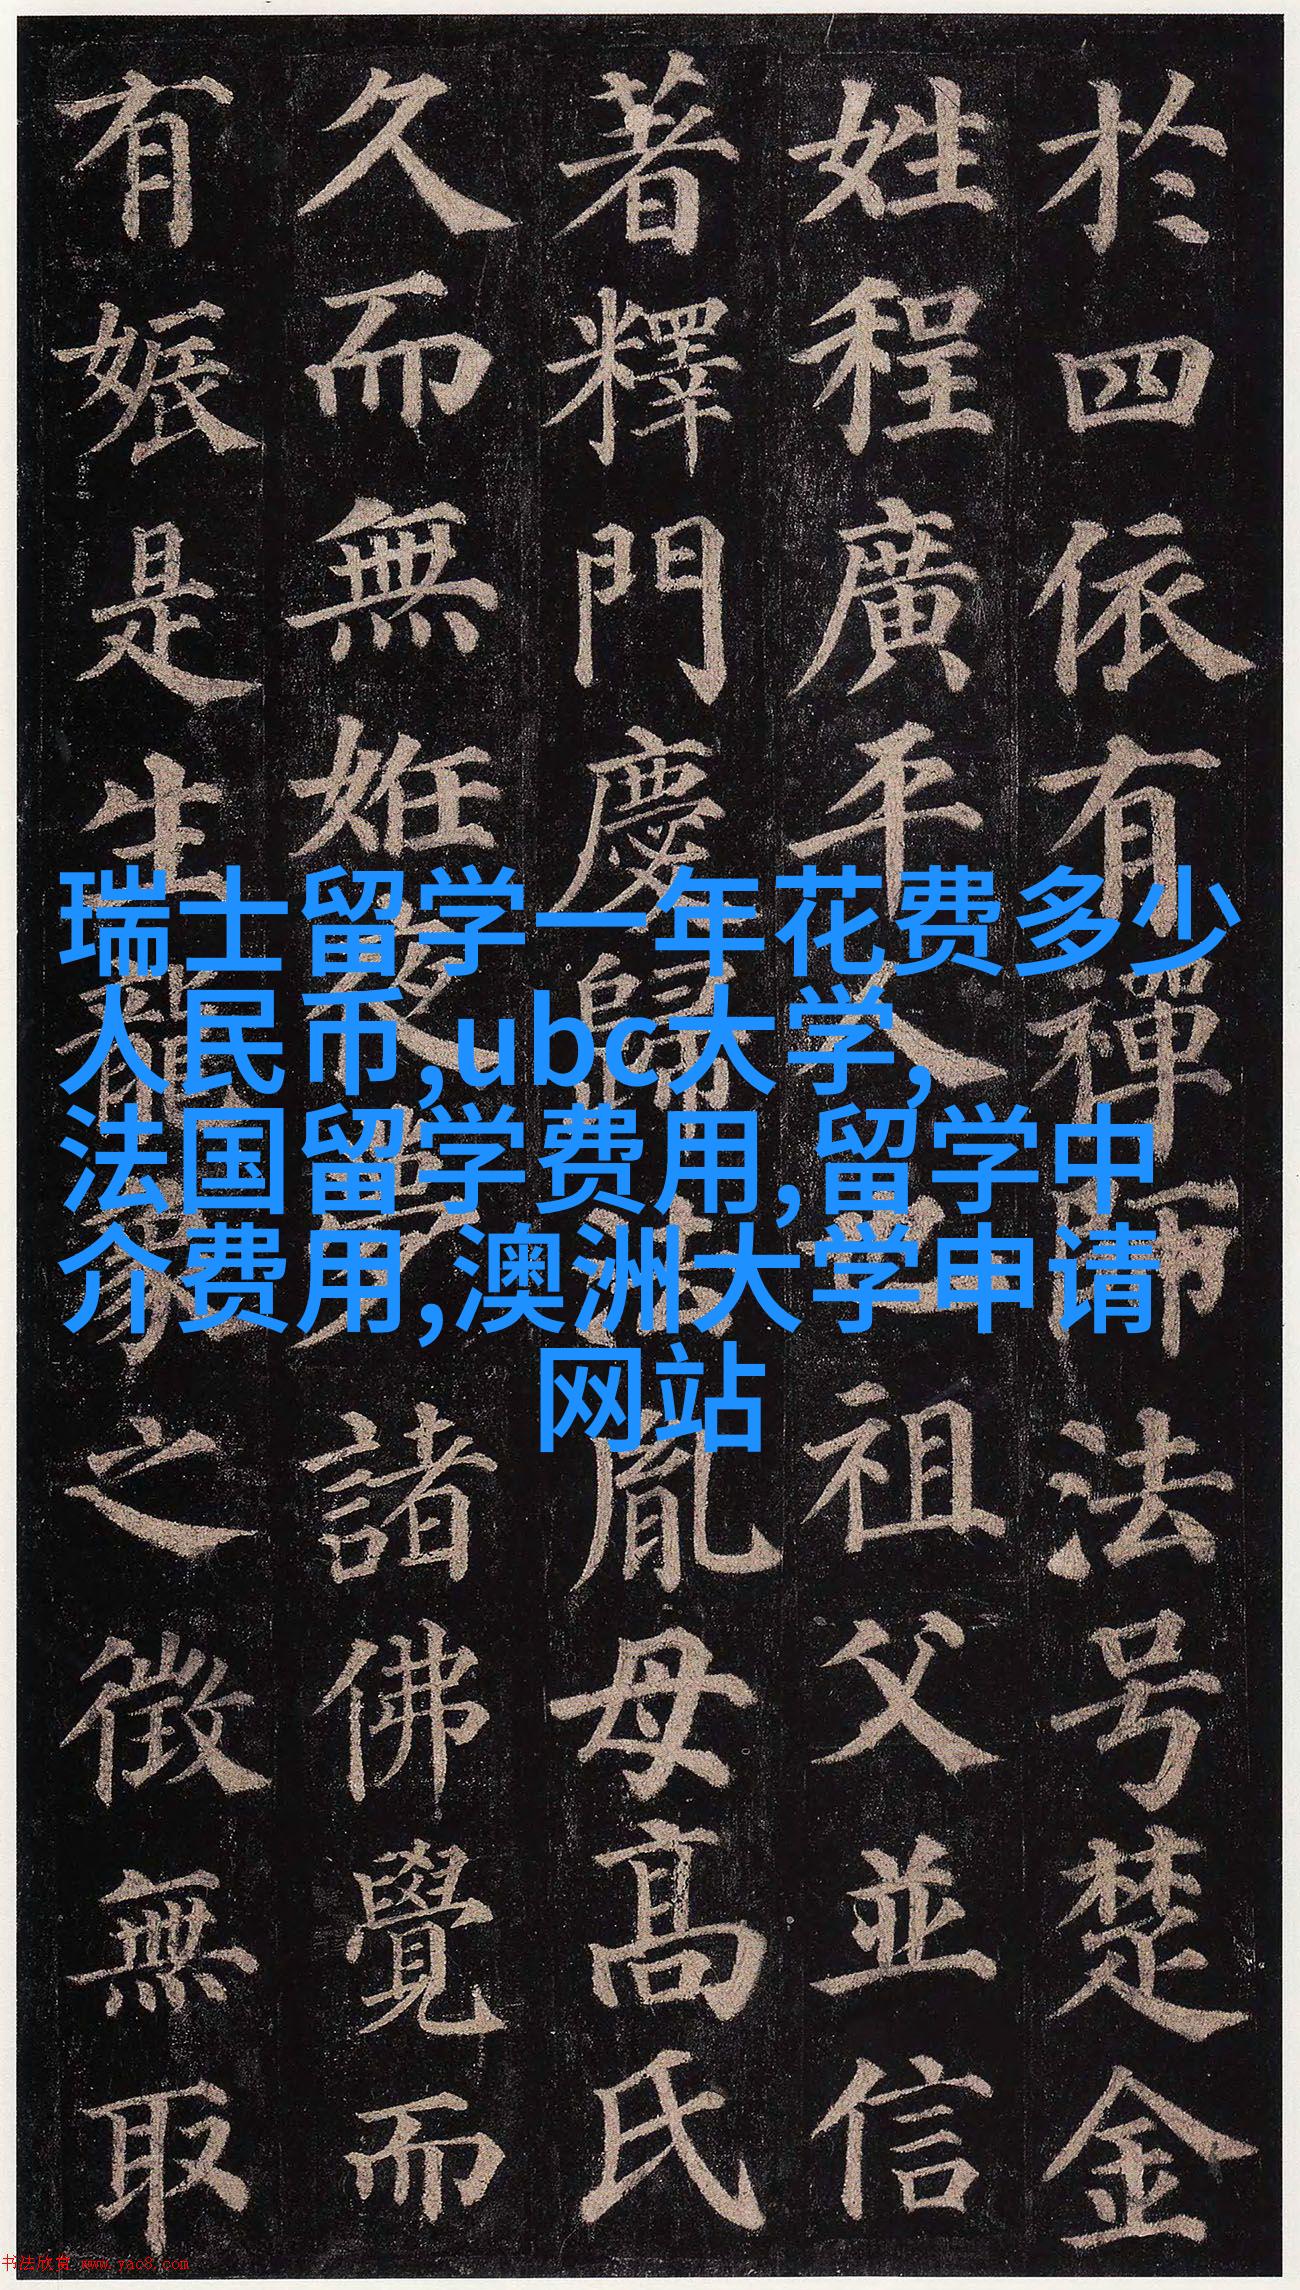 於四依有禪師法号楚金
姓程廣平人也祖父並信
著釋門慶歸法胤母高氏
久而無姙夜夢諸佛覺而
有娠是生龍象之徵無取
瑞士留学一年花费多少
人民币,ubc大学,
法国留学费用,留学中
介费用,澳洲大学申请
网站
书法欣赏 www.yac8.com